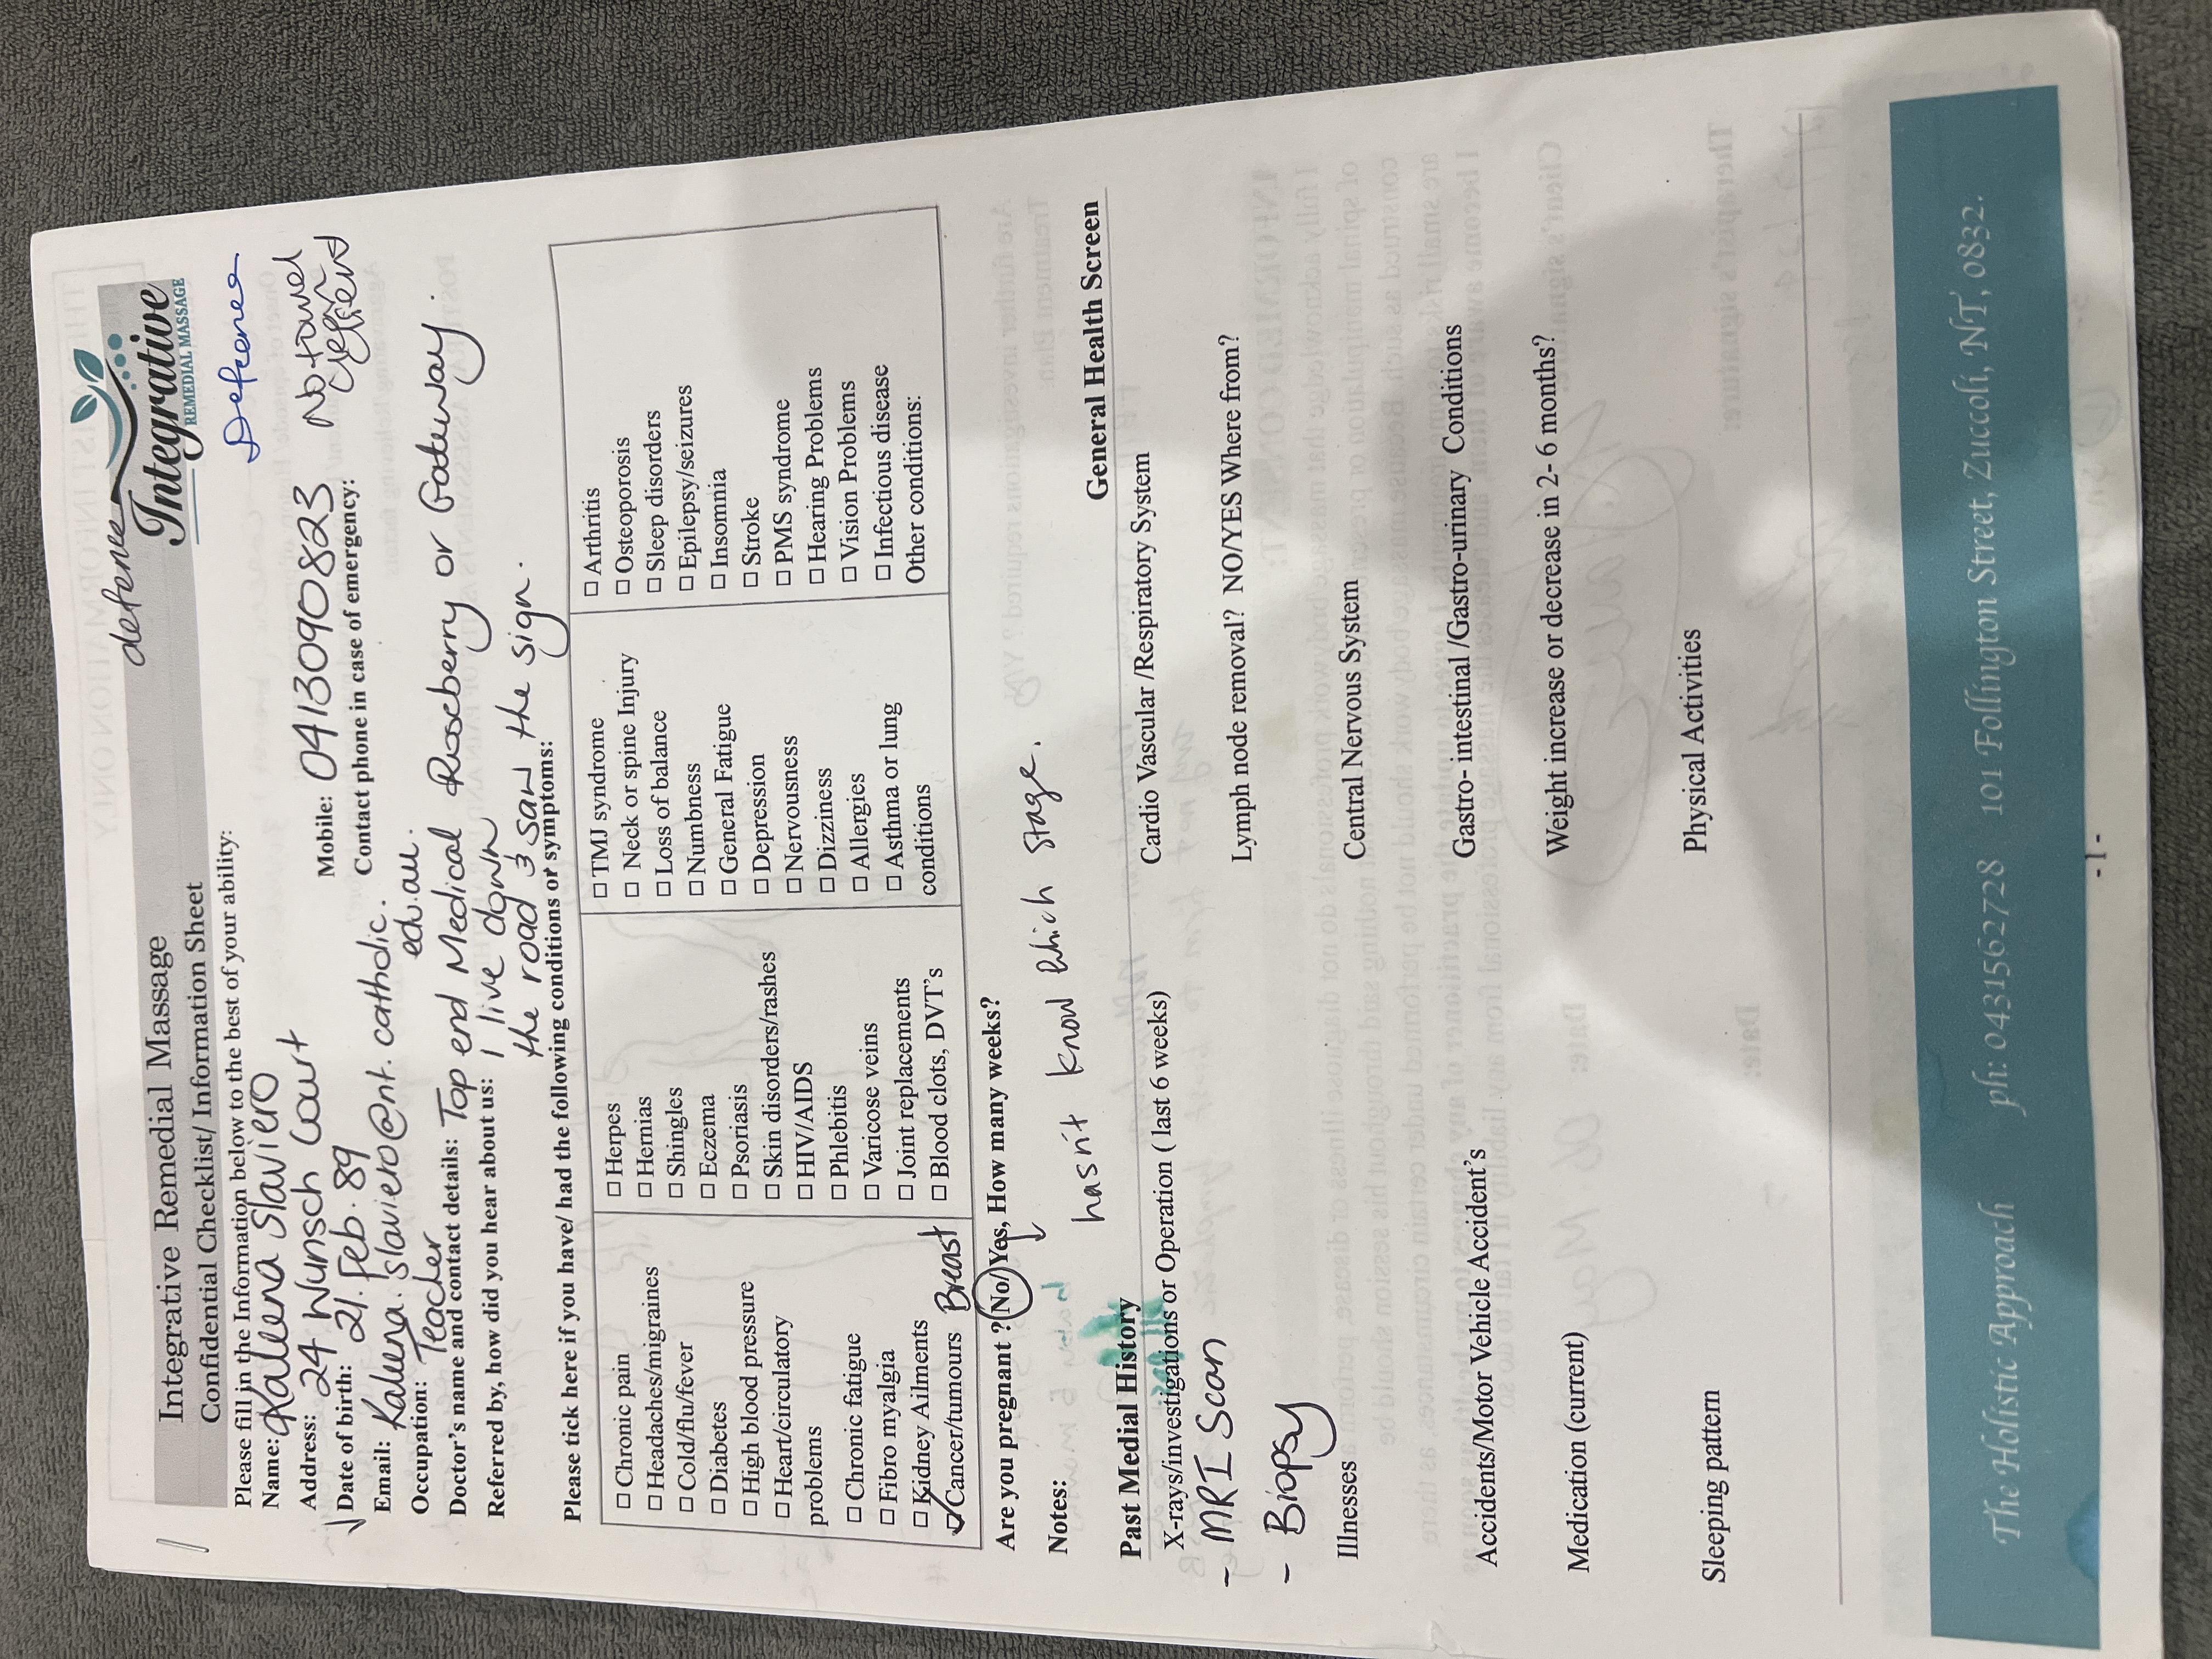 defence
Integrative Remedial Massage
Confidential Checklist/ Information Sheet
Integrative
REMEDIAL MASSAGE
Defence
Please fill in the Information below to the best of your ability:
Name: Kaleena Slaviero
Mobile: 0413090823
No towel
Address: 24 Wunsch Court
Contact phone in case of emergency:
Date of birth: 21. Feb. 89
Email: Kaleena.slaviero@nt.catholic.
edu.au.
Occupation: Teacher
Doctor's name and contact details: Top end Medical Roseberry or Gateway.
Referred by, how did you hear about us: I live down
the road & saw the sign.
Please tick here if you have/ had the following conditions or symptoms:
□ Chronic pain
□ Headaches/migraines
□ Cold/flu/fever
□ Diabetes
□ High blood pressure
□ Heart/circulatory
problems
□ Chronic fatigue
□ Fibro myalgia
□ Kidney Ailments
✓ Cancer/tumours Breast
□ Herpes
□ Hernias
□ Shingles
□ Eczema
□ Psoriasis
□ Skin disorders/rashes
□ HIV/AIDS
□ Phlebitis
□ Varicose veins
□ Joint replacements
□ Blood clots, DVT's
□ TMJ syndrome
□ Neck or spine Injury
□ Loss of balance
□ Numbness
□ General Fatigue
□ Depression
□ Nervousness
□ Dizziness
□ Allergies
□ Asthma or lung
conditions
□ Arthritis
□ Osteoporosis
□ Sleep disorders
□ Epilepsy/seizures
□ Insomnia
□ Stroke
□ PMS syndrome
□ Hearing Problems
□ Vision Problems
□ Infectious disease
Other conditions:
Are you pregnant ? No/ Yes, How many weeks?
Notes:
hasn't know which stage.
Past Medial History
General Health Screen
X-rays/investigations or Operation ( last 6 weeks)
Cardio Vascular /Respiratory System
- MRI Scan
Lymph node removal? NO/YES Where from?
- Biopsy
Illnesses
Central Nervous System
Accidents/Motor Vehicle Accident's
Gastro- intestinal /Gastro-urinary Conditions
Medication (current)
Weight increase or decrease in 2- 6 months?
Sleeping pattern
Physical Activities
The Holistic Approach ph: 0431562728 101 Follington Street, Zuccoli, NT, 0832.
- 1 -